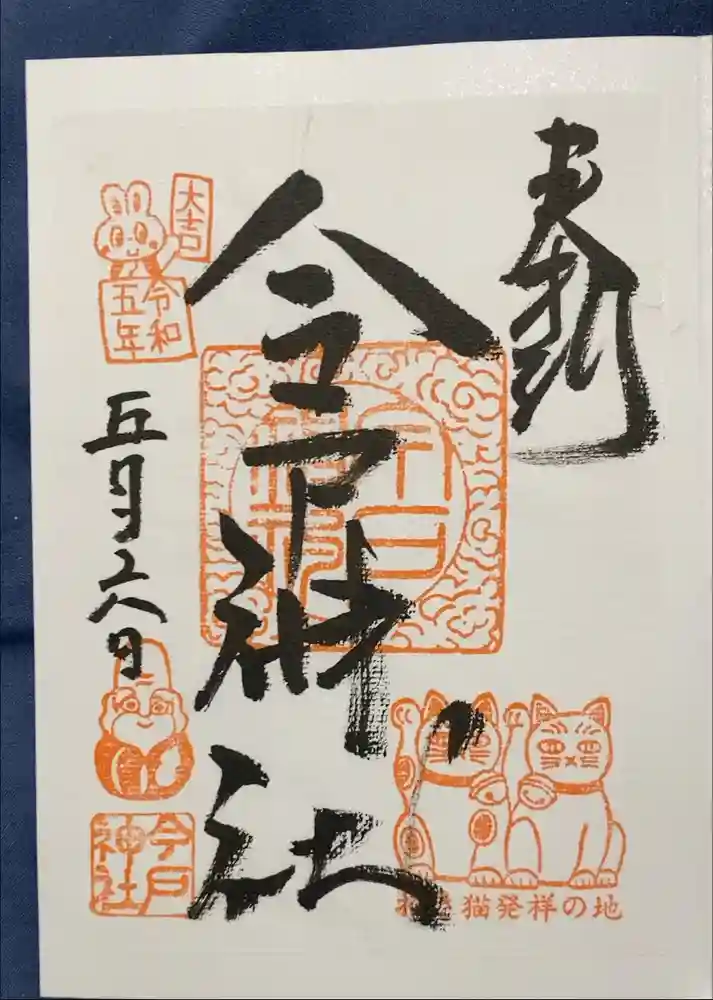 奉拝
今戸神社
今戸神社
大吉
令和
五年
五月二八日
今戸
神社
猫発祥の地